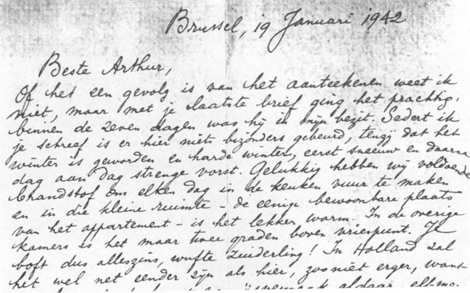 Brussel, 19 Januari 1942
Beste Arthur,
Of het een gevolg is van het aanteekenen weet ik
niet, maar met je laatste brief ging het prachtig,
binnen de zeven dagen was hij in mijn bezit. Sedert ik
je schreef is er hier niets bizonders gebeurd, tenzij dat het
winter is geworden en harde winter, eerst sneeuw en daarna
dag aan dag strenge vorst. Gelukkig hebben wij voldoende
brandstof om elken dag in de keuken vuur te maken
en in die kleine ruimte - de eenige bewoonbare plaats
van het appartement - is het lekker warm. In de overige
kamers is het maar twee graden boven vriespunt. Je
boft dus alleszins, wufte zuiderling! In Holland zal
het wel net eender zijn als hier, zooniet erger, want
aldaar